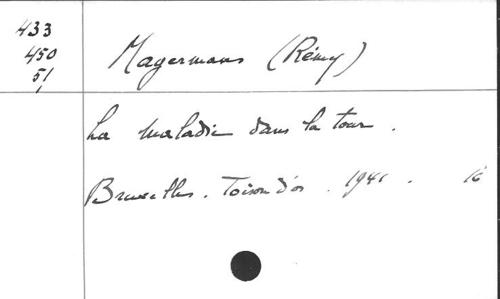 433
450
51
Magermans (Rémy)
La maladie dans la tour.
Bruxelles. Toison d'or. 1941. 16